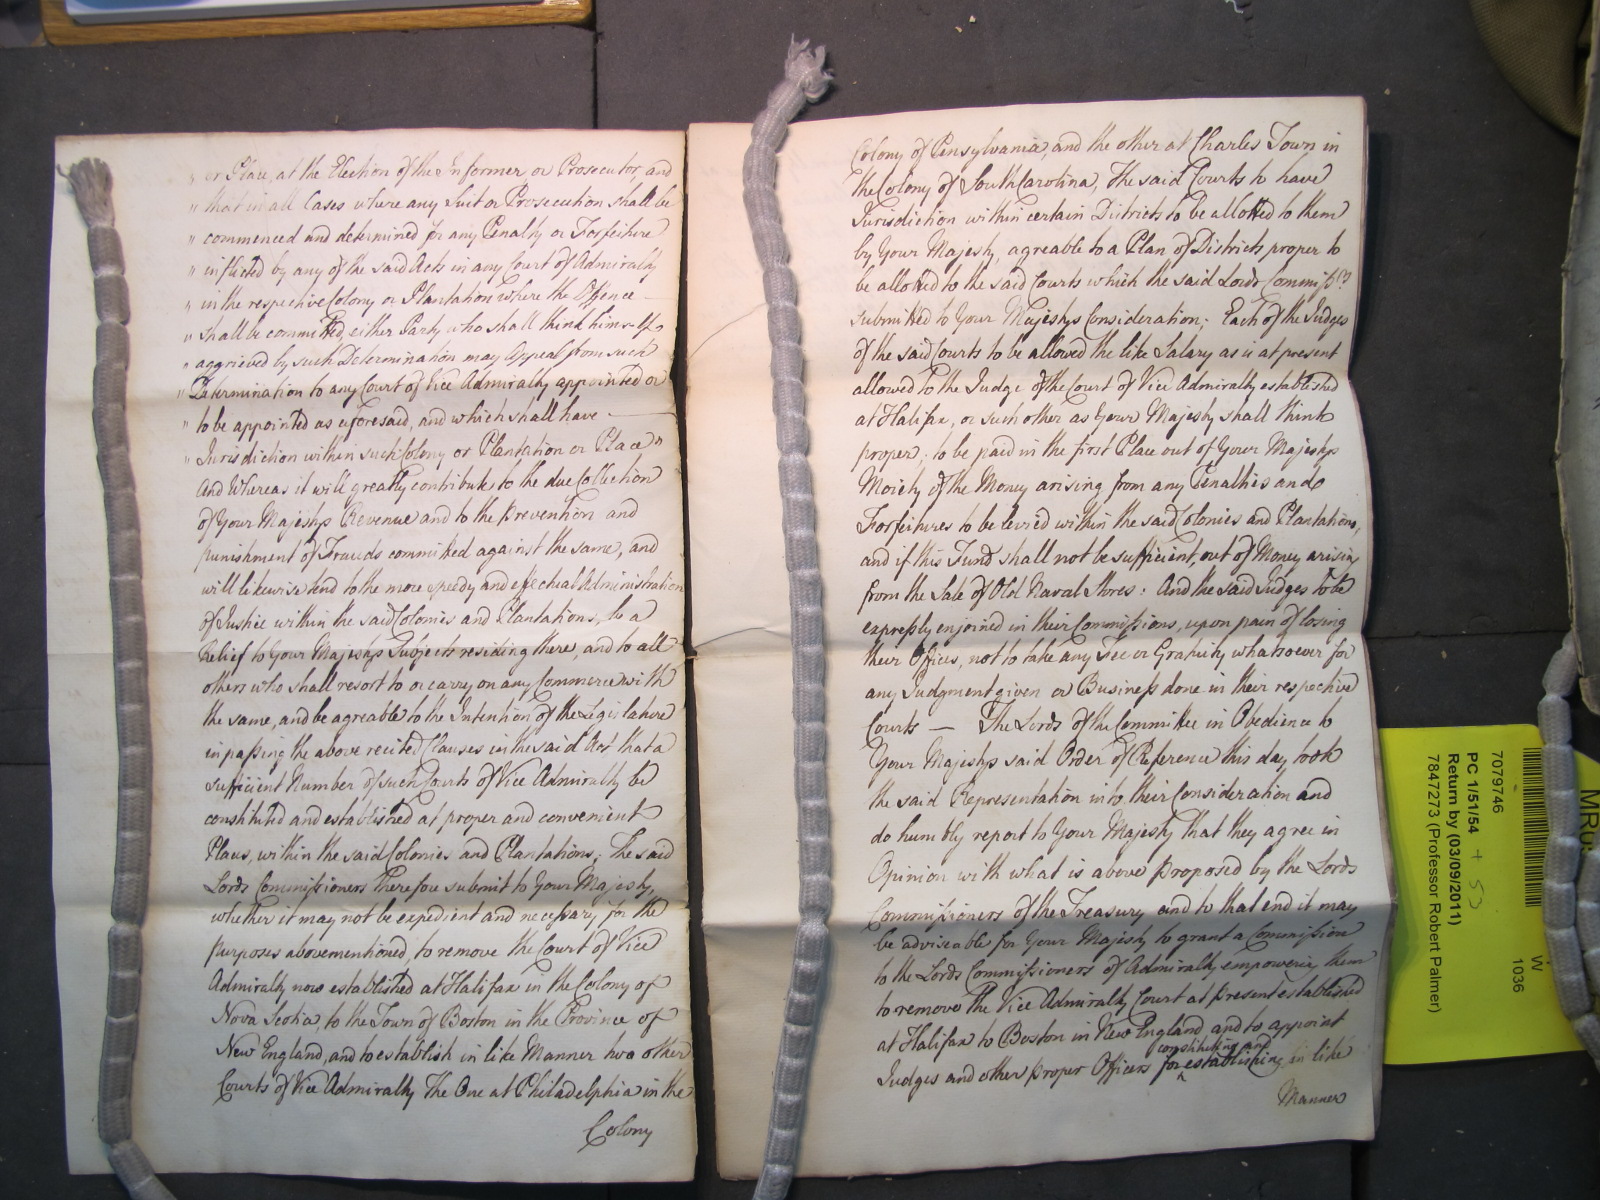 " or Place, at the Election of the Informer or Prosecutor, and
" that in all Cases where any Suit or Prosecution shall be
" commenced and determined for any Penalty or Forfeiture
" inflicted by any of the said Acts in any Court of Admiralty
" in the respective Colony or Plantation where the Offence
" shall be committed, either Party who shall think himself
" aggrieved by such Determination may Appeal from such
" Determination to any Court of Vice Admiralty appointed or
" to be appointed as aforesaid, and which shall have
" Jurisdiction within such Colony or Plantation or Place"
And Whereas it will greatly contribute to the due Collection
of Your Majestys Revenue and to the prevention and
punishment of Frauds committed against the same, and
will likewise tend to the more speedy and effectual Administration
of Justice within the said Colonies and Plantations, be a
Relief to Your Majestys Subjects residing there, and to all
others who shall resort to or carry on any Commerce with
the same, and be agreable to the Intention of the Legislature
in passing the above recited Clauses in the said Act that a
sufficient Number of such Courts of Vice Admiralty be
constituted and established at proper and convenient
Places, within the said Colonies and Plantations; The said
Lords Commissioners therefore submit to Your Majesty,
whether it may not be expedient and necessary for the
purposes abovementioned, to remove the Court of Vice
Admiralty now established at Halifax in the Colony of
Nova Scotia, to the Town of Boston in the Province of
New England, and to establish in like Manner two other
Courts of Vice Admiralty The One at Philadelphia in the
Colony
Colony of Pensylvania, and the other at Charles Town in
the Colony of South Carolina, The said Courts to have
Jurisdiction within certain Districts to be allotted to them
by Your Majesty, agreable to a Plan of Districts proper to
be allotted to the said Courts which the said Lords Commissrs
submitted to Your Majestys Consideration; Each of the Judges
of the said Courts to be allowed the like Salary as is at present
allowed to the Judge of the Court of Vice Admiralty established
at Halifax, or such other as Your Majesty shall think
proper; to be paid in the first Place out of Your Majestys
Moiety of the Money arising from any Penalties and
Forfeitures to be levied within the said Colonies and Plantations,
and if this Fund shall not be sufficient, out of Money arising
from the Sale of Old Naval Stores: And the said Judges to be
expressly enjoined in their Commissions, upon pain of losing
their Offices, not to take any Fee or Gratuity whatsoever for
any Judgment given or Business done in their respective
Courts — The Lords of the Committee in Obedience to
Your Majestys said Order of Reference this day took
the said Representation into their Consideration and
do humbly report to Your Majesty that they agree in
Opinion with what is above proposed by the Lords
Commissioners of the Treasury and to that end it may
be adviseable for Your Majesty to grant a Commission
to the Lords Commissioners of Admiralty empowering them
to remove the Vice Admiralty Court at present established
at Halifax to Boston in New England, and to appoint
constituting and
Judges and other proper Officers for establishing in like
Manner
7079746
W
1036
PC 1/51/54 + 53
Return by (03/09/2011)
7847273 (Professor Robert Palmer)